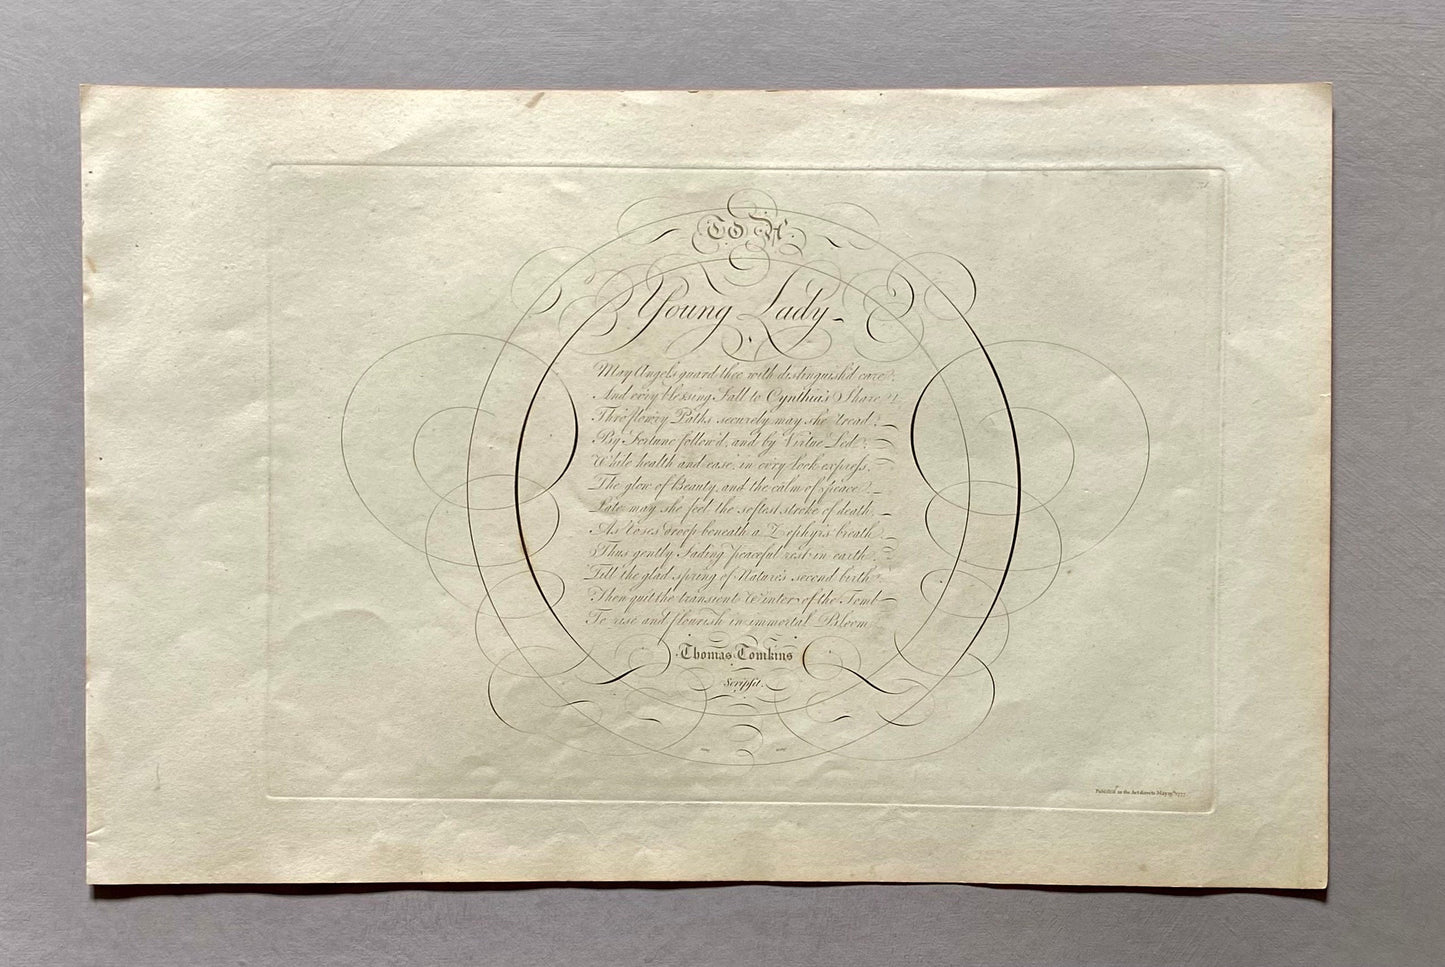 To A
Young Lady
May Angels guard thee with distinguish'd care,
And ev'ry blessing Fall to Cynthia's Share!
Thro' flow'ry Paths securely may she tread,
By Fortune follow'd, and by Virtue Led;
While health and ease, in ev'ry look express,
The glow of Beauty, and the calm of peace.
Late may she feel the softest stroke of death,
As Roses droop beneath a Zephyr's breath
Thus gently Fading peaceful rest in earth,
Till the glad spring of Nature's second birth;
Then quit the transient Winter of the Tomb
To rise and flourish in immortal Bloom.
Thomas Tomkins
Scripsit.
Publish'd as the Act directs May 1777